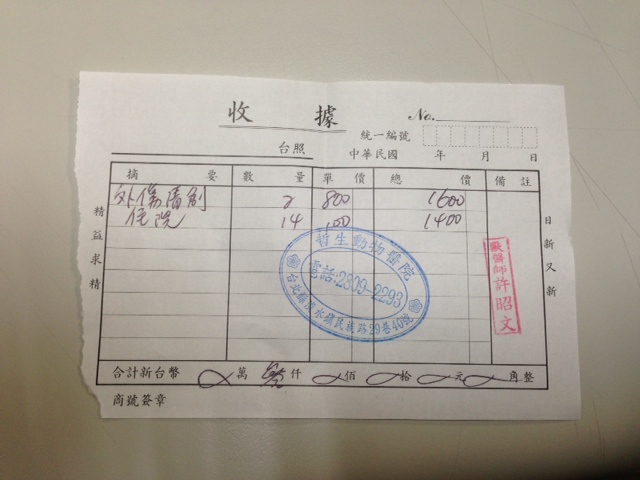 收據 No.
統一編號
台照 中華民國 年 月 日
摘要 數量 單價 總價 備註
外傷清創 2 800 1600
住院 14 100 1400
精益求精
日新又新
哲生動物醫院
電話:2809-2293
台北縣淡水鎮民族路29巷40號
獸醫師許昭文
合計新台幣 萬 仟 佰 拾 元 角整
商號簽章